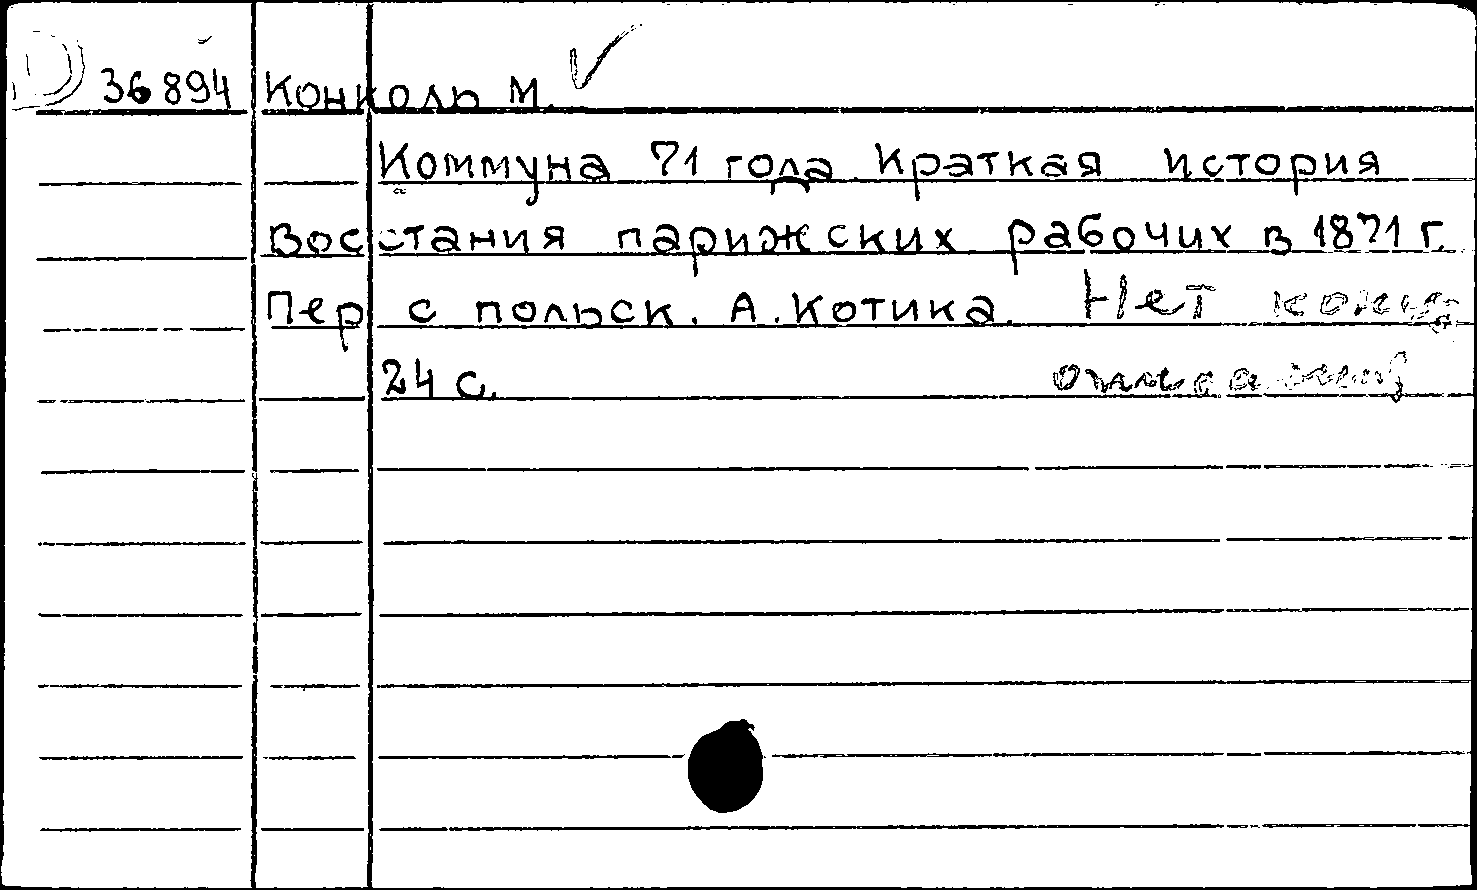 36894 Конколь М.
Коммуна 71 года. Краткая история
восстания парижских рабочих в 1871 г.
Пер. с польск. А. Котика. Нет конца
24 с.